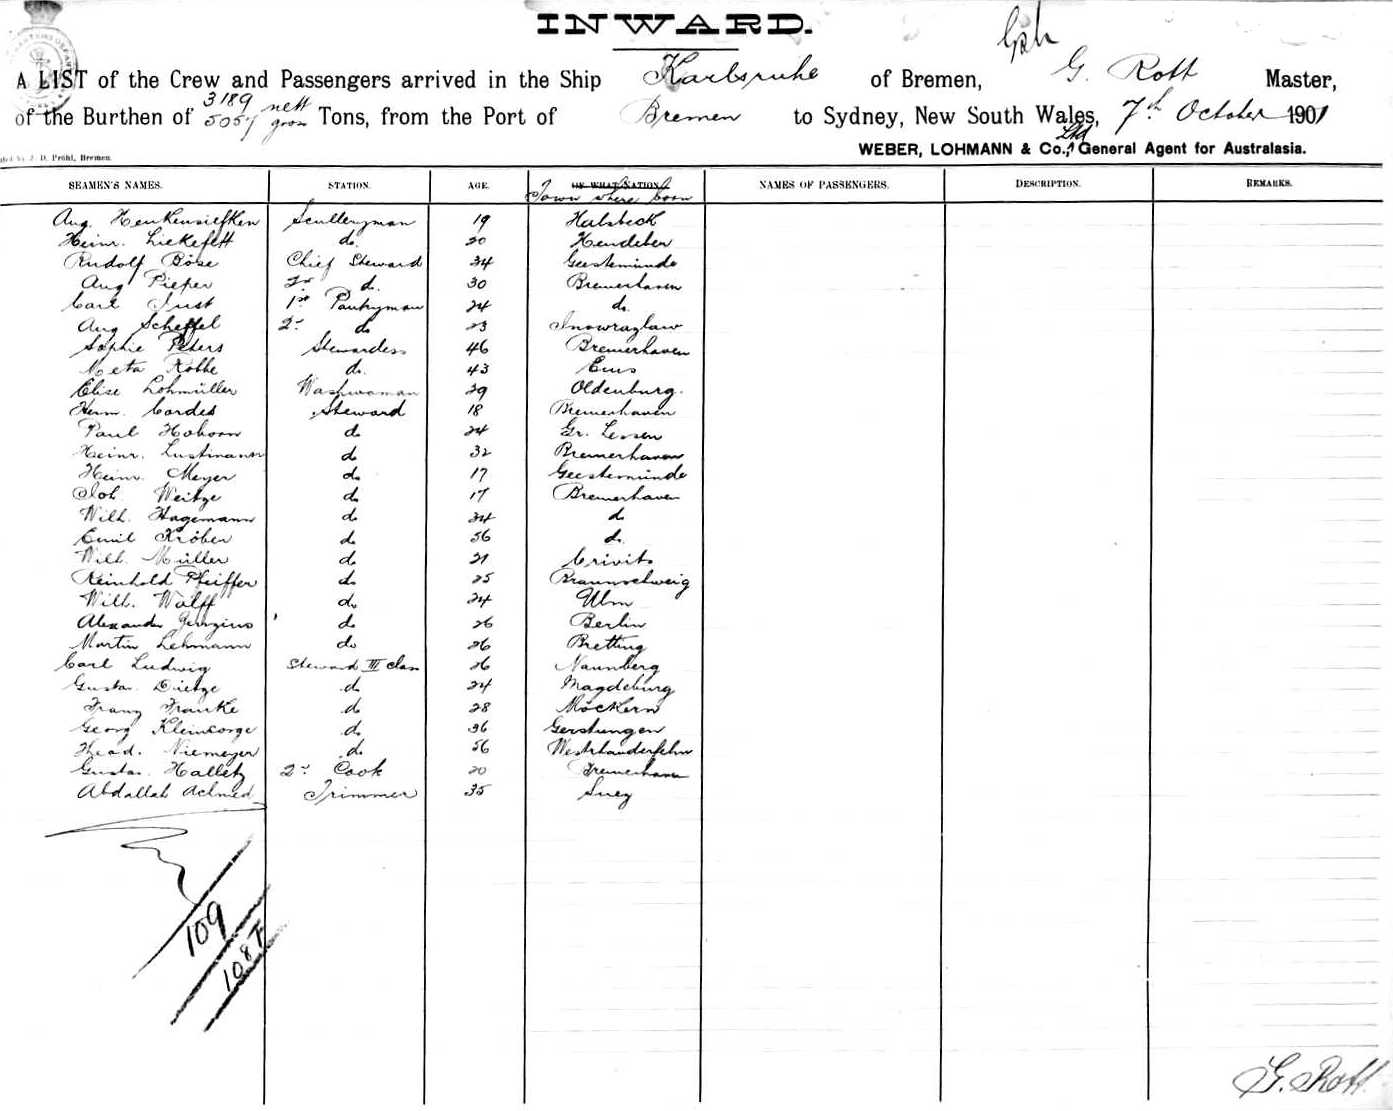 INWARD.
A LIST of the Crew and Passengers arrived in the Ship Karlsruhe of Bremen, G. Rott Master,
of the Burthen of 3189 nett 5057 gross Tons, from the Port of Bremen to Sydney, New South Wales, 7th October 1901
WEBER, LOHMANN & Co., Ltd General Agent for Australasia.
J. D. Pröhl, Bremen.
SEAMEN'S NAMES. STATION. AGE. OF WHAT NATION. Town where born NAMES OF PASSENGERS. DESCRIPTION. REMARKS.
Aug. Sculleryman 19 Halsbeck
Heinr. Liekefett do. 20 Heudeber
Rudolf Böse Chief Steward 34 Geestemünde
Aug Pieper 2nd d. 30 Bremerhaven
Carl Just 1st Pantryman 24 do.
Aug Scheffel 2nd do 23 Inowrazlaw
Sophie Peters Stewardess 46 Bremerhaven
Meta Kothe do. 43 Ems
Elise Lohmüller Washwoman 29 Oldenburg.
Herm. Cordes Steward 18 Bremerhaven
Paul Hoborn do 24 Gr. Lessen
Heinr. Lustmann do 32 Bremerhaven
Heinr. Meyer do 17 Geestemünde
Joh. Weitze do 17 Bremerhaven
Wilh. Hagemann do 24 do
Emil Kröber do 56 do.
Wilh. Müller do 21 Crivitz
Reinhold Pfeiffer do 25 Braunschweig
Wilh. Wolff do 24 Ulm
Alexander do 26 Berlin
Martin Lehmann do 26 Bretting
Carl Ludwig Steward III class 26 Naumberg
Gustav Dietze do 24 Magdeburg
Franz Franke do 28 Möckern
Georg Kleinsorge do 36 Gerstungen
Thead. Niemeyer do 56 Westrhauderfehn
Gustav Halletz 2nd Cook 20 Bremerhaven
Abdallah Achmed Trimmer 35 Suez
109
108 +
G. Rott